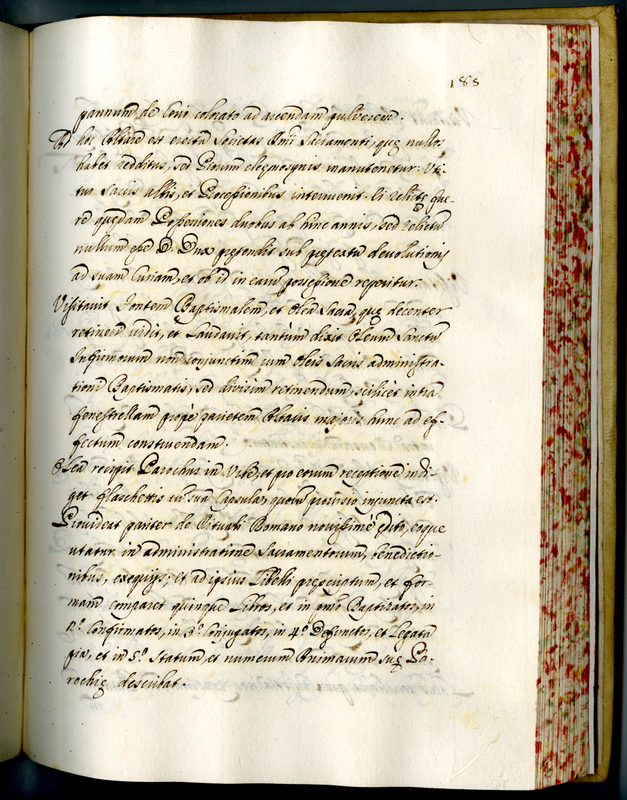 185
pannum de Corio colorato ad arcendam pulverem.
Ad hoc Altare est erecta Societas SSmi Sacramenti, quę nullos
habet redditus, sed Piorum elęmosynis manutenetur. Uti-
tur saccis albis, et Processionibus intervenit. Ei relictę fue-
rē quędam Possessiones duobus ab hinc annis, sed relictū
nullum esse D. Dnx prętendit sub prętextu devolutionis
ad suam Curiam, et ob id in earū possessione reperitur.
Visitavit Fontem Baptismalem, et Olea Sacra, quę decenter
retineri vidit, et Laudavit, tantùm dixit Oleum Sanctū
Infirmorum non conjunctim cum Oleis sacris administra-
tioni Baptismatis, sed divisim retinendum, scilicèt intra
fenestrellam propè parietem Altaris majoris hunc ad ef-
fectum construendam.
Olea recipit Parochus in Urbe, et pro eorum receptione indi-
get flaschettis cū sua Capsula, quorū provisio injuncta est.
Provideat pariter de Rituali Romano novissimè ędito, eoque
utatur in administratione Sacramentorum, benedictio-
nibus, exequijs; et ad ipsius Libelli pręscriptum, et for-
mam comparet quinque Libros, et in pmo Baptizatos, in
2.º Confirmatos, in 3.º Conjugatos, in 4.º Defunctos, et Legata
pia, et in 5.º Statum, et numerum Animarum suę Pa-
rochię describat.